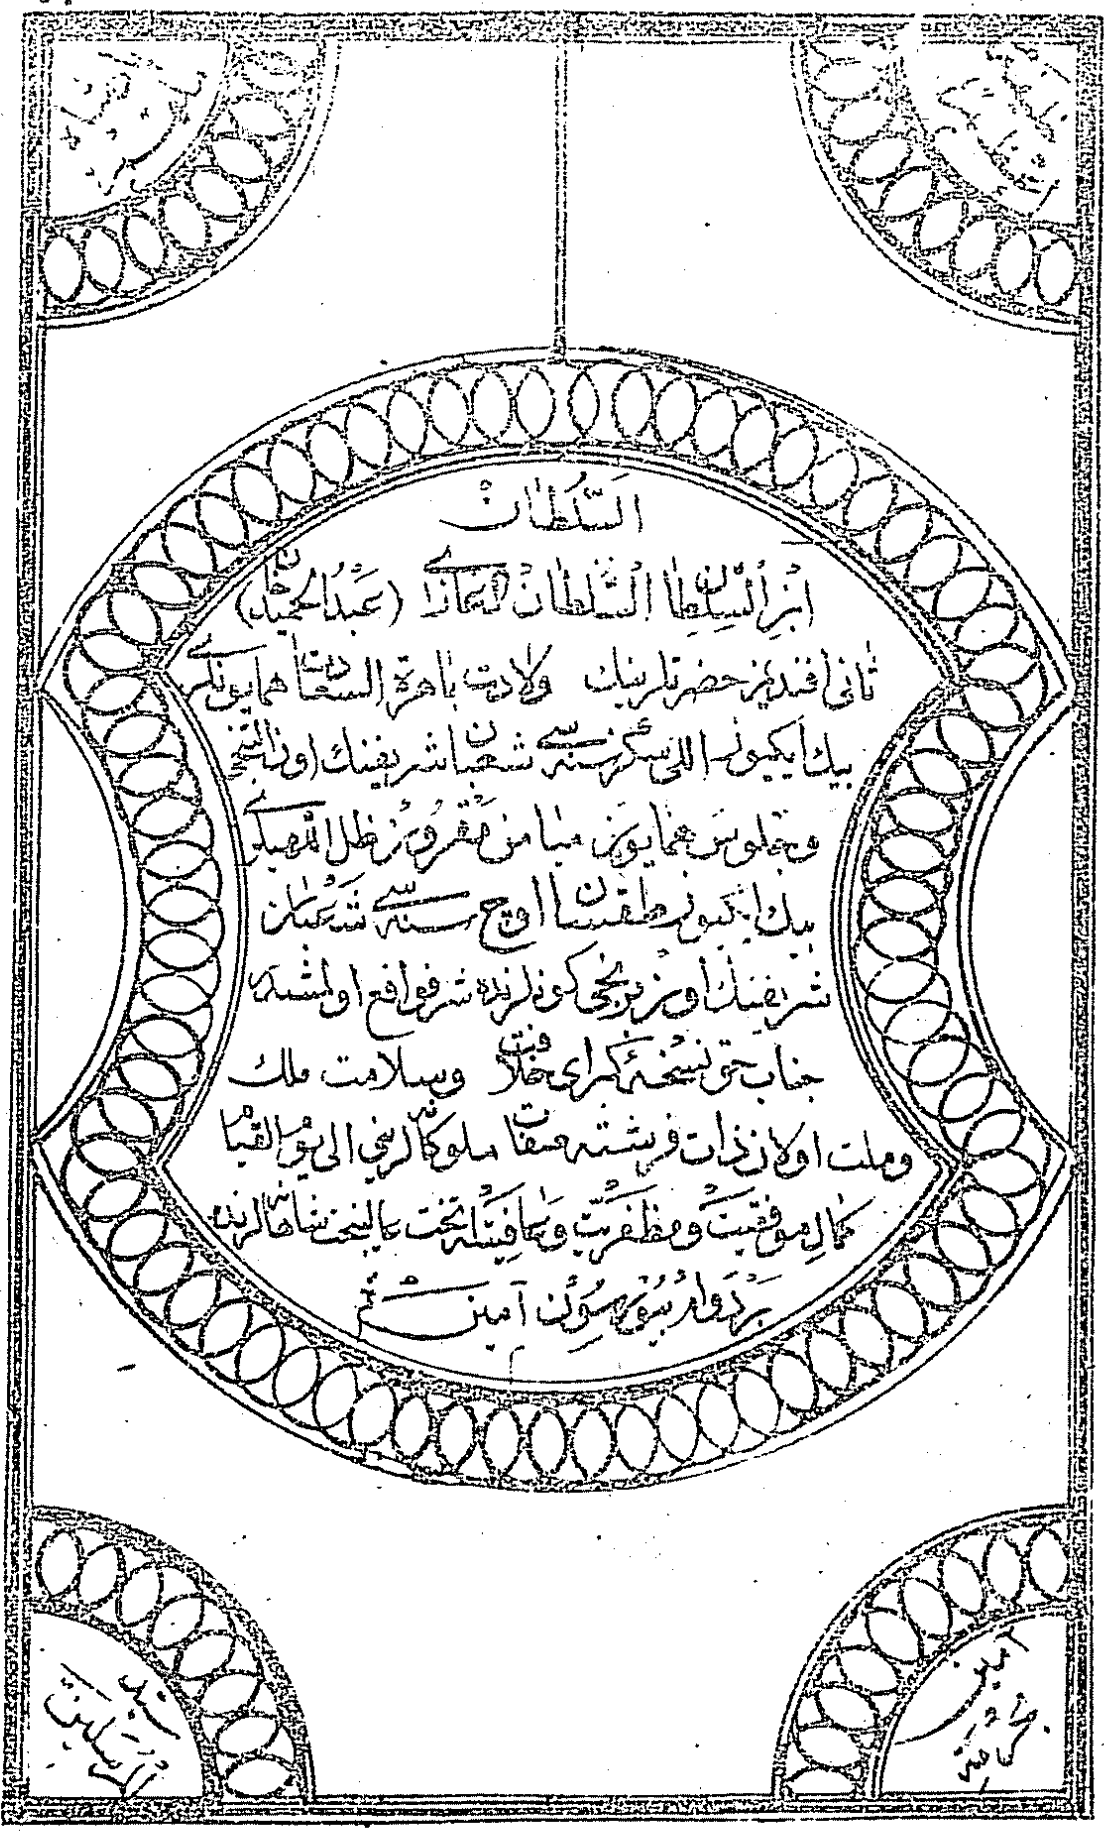 السلطان
ابن السلطان السلطان الغازى (عبد الحميد خان)
ثانى افنديمز حضرتلرينك ولادت باهرة السعادت همايونلرى
بيك ايكيوز اللى سكز سنه سى شعبان شريفينك اون التنجى
وجلوس همايون ميامن مقرون ظل اللهيلرى
بيك ايكيوز طقسان اوچ سنه سى شعبان
شريفينك اون برنجى كونلرنده شرفواقع اولمشدر
جناب حق نسخهٔ كبراى خلافت وسلامت ملك
وملت اولان ذات فرشته صفات ملوكانه لرينى الى يوم القيام
كمال موفقيت ومظفريت وعافيتله تخت عاليبخت شاهانه لرنده
بردوام بيورسون آمين
سيد المرسلين
آمين بحرمة